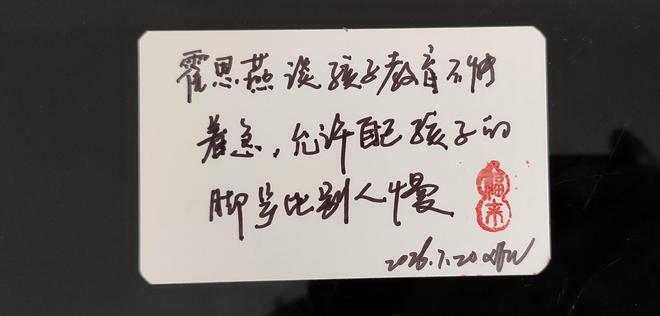 霍思燕谈孩子教育不能
着急，允许自己孩子的
脚步比别人慢
福来
2026.7.20